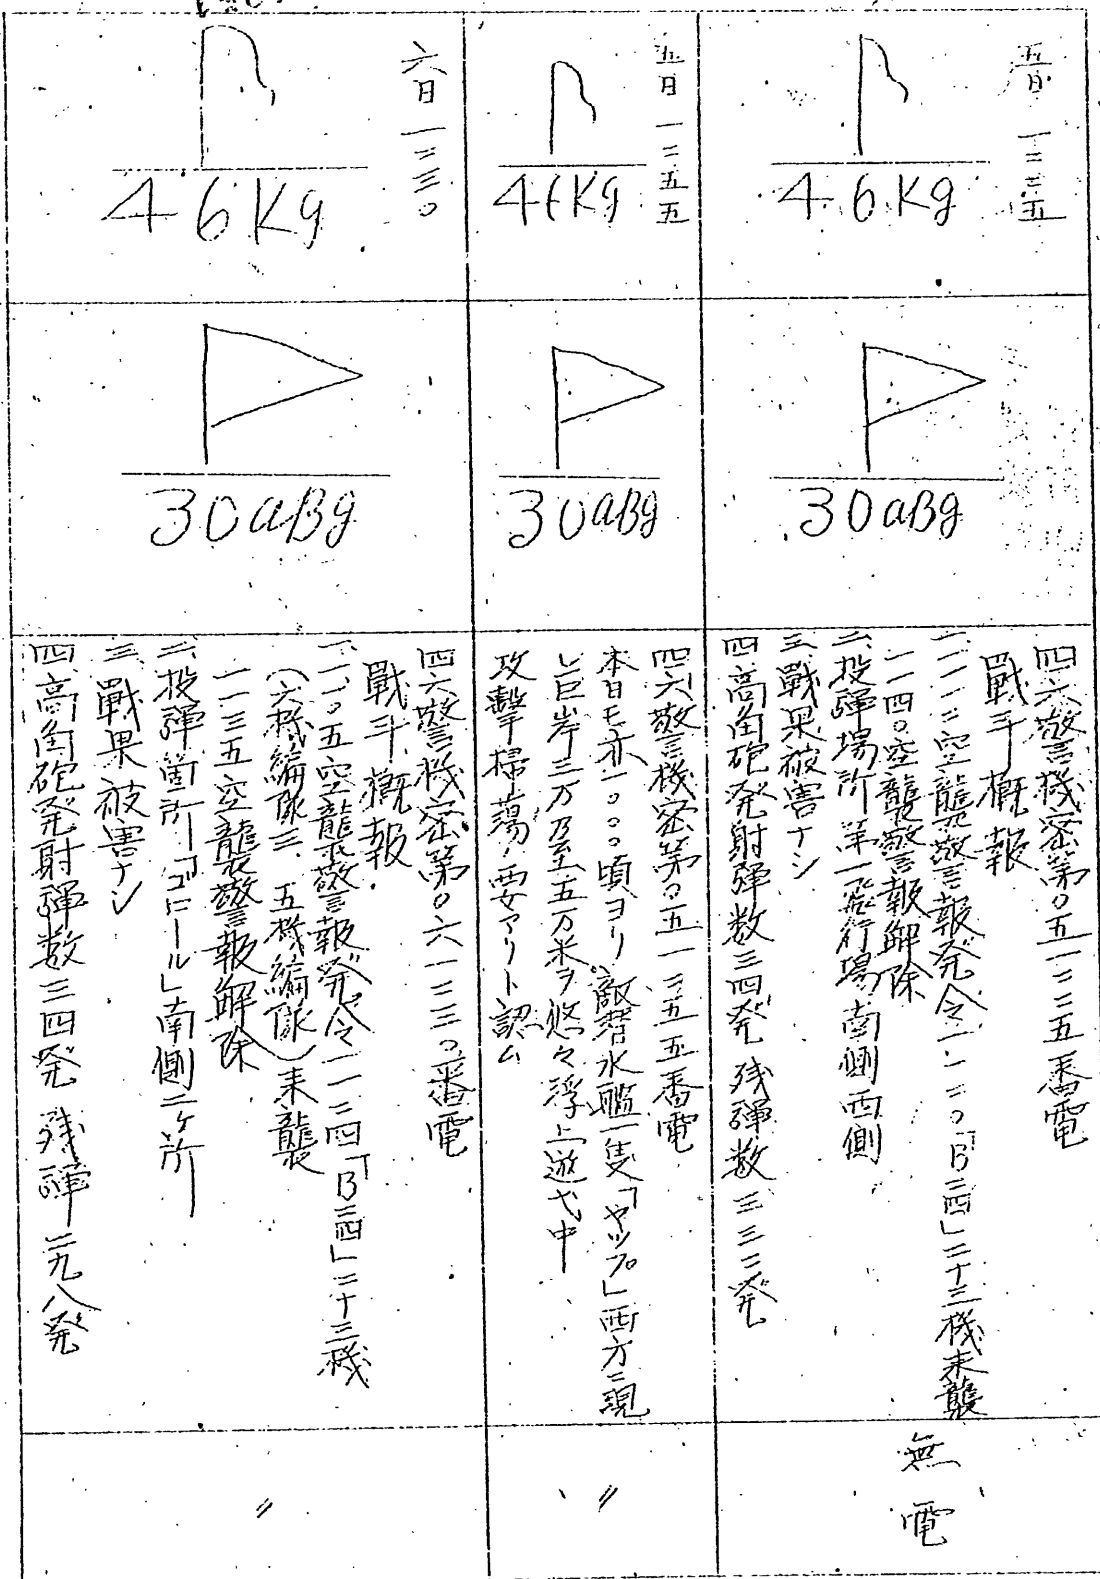 五日 一二二五
46Kg
30aBg
四六警機密第〇五一二二五番電
戰斗概報
一、一一一二空襲警報発令一一二〇「B二四」二十三機来襲
一一四〇空襲警報解除
二、投弾場所 第一飛行場 南側西側
三、戰果被害ナシ
四、高角砲発射弾数三四発 残弾数三三二発
無電
五日 一二五五
46Kg
30aBg
四六警機密第〇五一二五五番電
本日モ亦一〇〇〇頃ヨリ敵潜水艦一隻「ヤップ」西方ニ現
レ巨岸三万乃至五万米ヲ悠々浮上遊弋中
攻撃掃蕩ノ要アリト認ム
〃
六日 一二三〇
46Kg
30aBg
四六警機密第〇六一二三〇番電
戰斗概報
一、一一〇五空襲警報発令一一二四「B二四」二十三機
(六機編隊三、五機編隊一)来襲
一一三五空襲警報解除
二、投弾箇所「ゴロール」南側二ヶ所
三、戰果被害ナシ
四、高角砲発射弾数三四発 残弾二九八発
〃